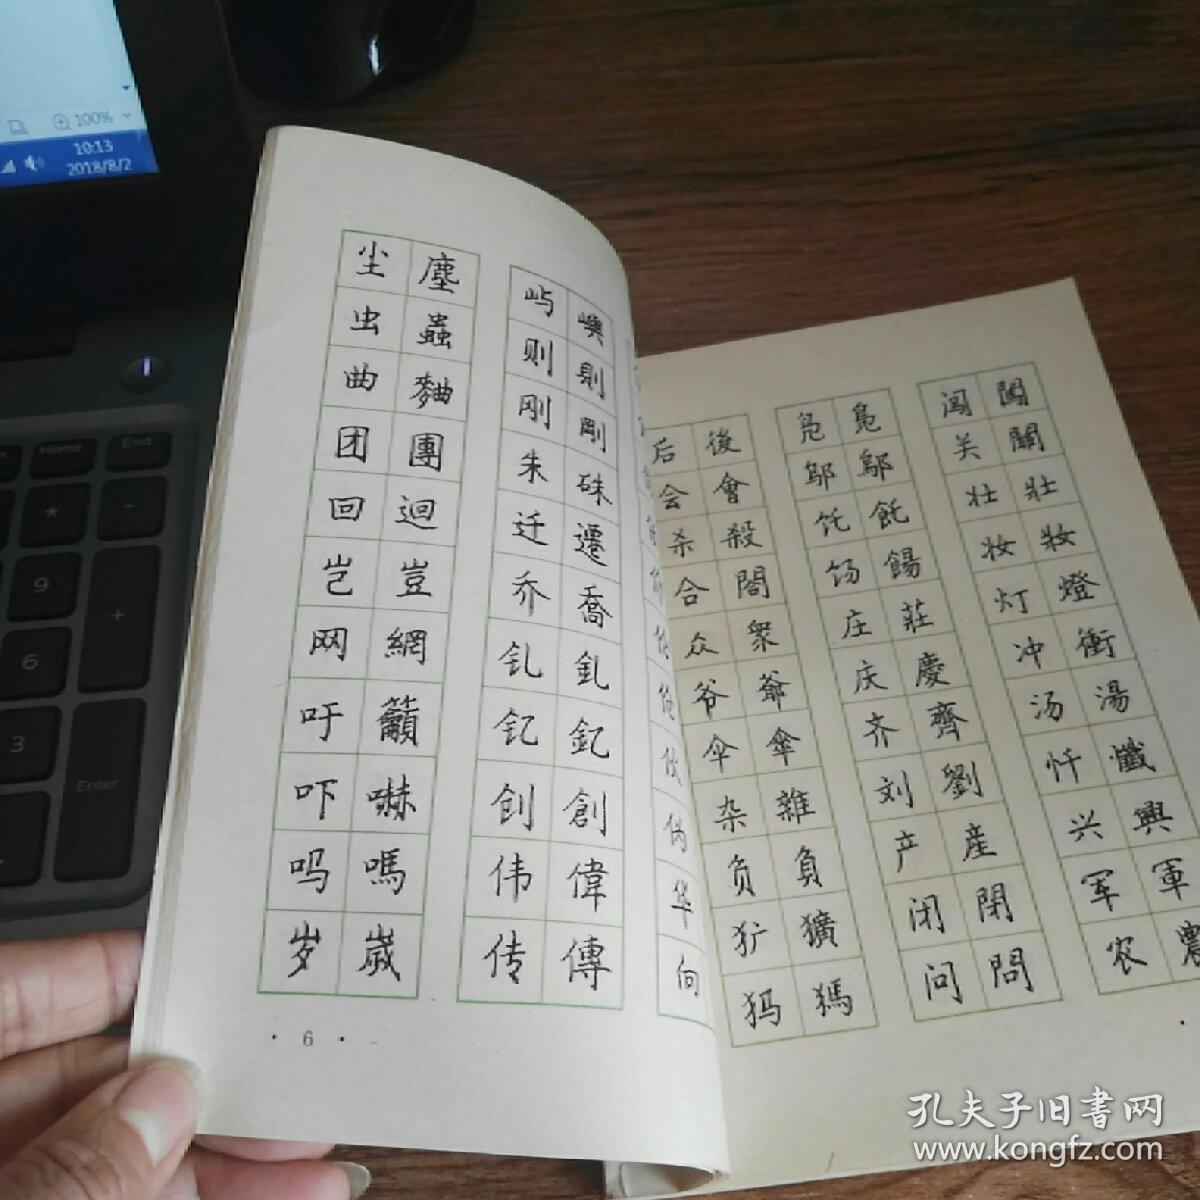 100%
10:13
2018/8/2
Home
End
*
-
9
+
6
3
Enter
尘 塵
虫 蟲
曲 麯
团 團
回 迴
岂 豈
网 網
吁 籲
吓 嚇
吗 嗎
岁 歲
屿 嶼
则 則
刚 剛
朱 硃
迁 遷
乔 喬
钆 釓
钇 釔
创 創
伟 偉
传 傳
伪
华
向
· 6 ·
后 後
会 會
杀 殺
合 閤
众 衆
爷 爺
伞 傘
杂 雜
负 負
犷 獷
犸 獁
凫 鳧
邬 鄔
饦 飥
饧 餳
庄 莊
庆 慶
齐 齊
刘 劉
产 産
闭 閉
问 問
闯 闖
关 關
壮 壯
妆 妝
灯 燈
冲 衝
汤 湯
忏 懺
兴 興
军 軍
农 農
孔夫子旧書网
www.kongfz.com